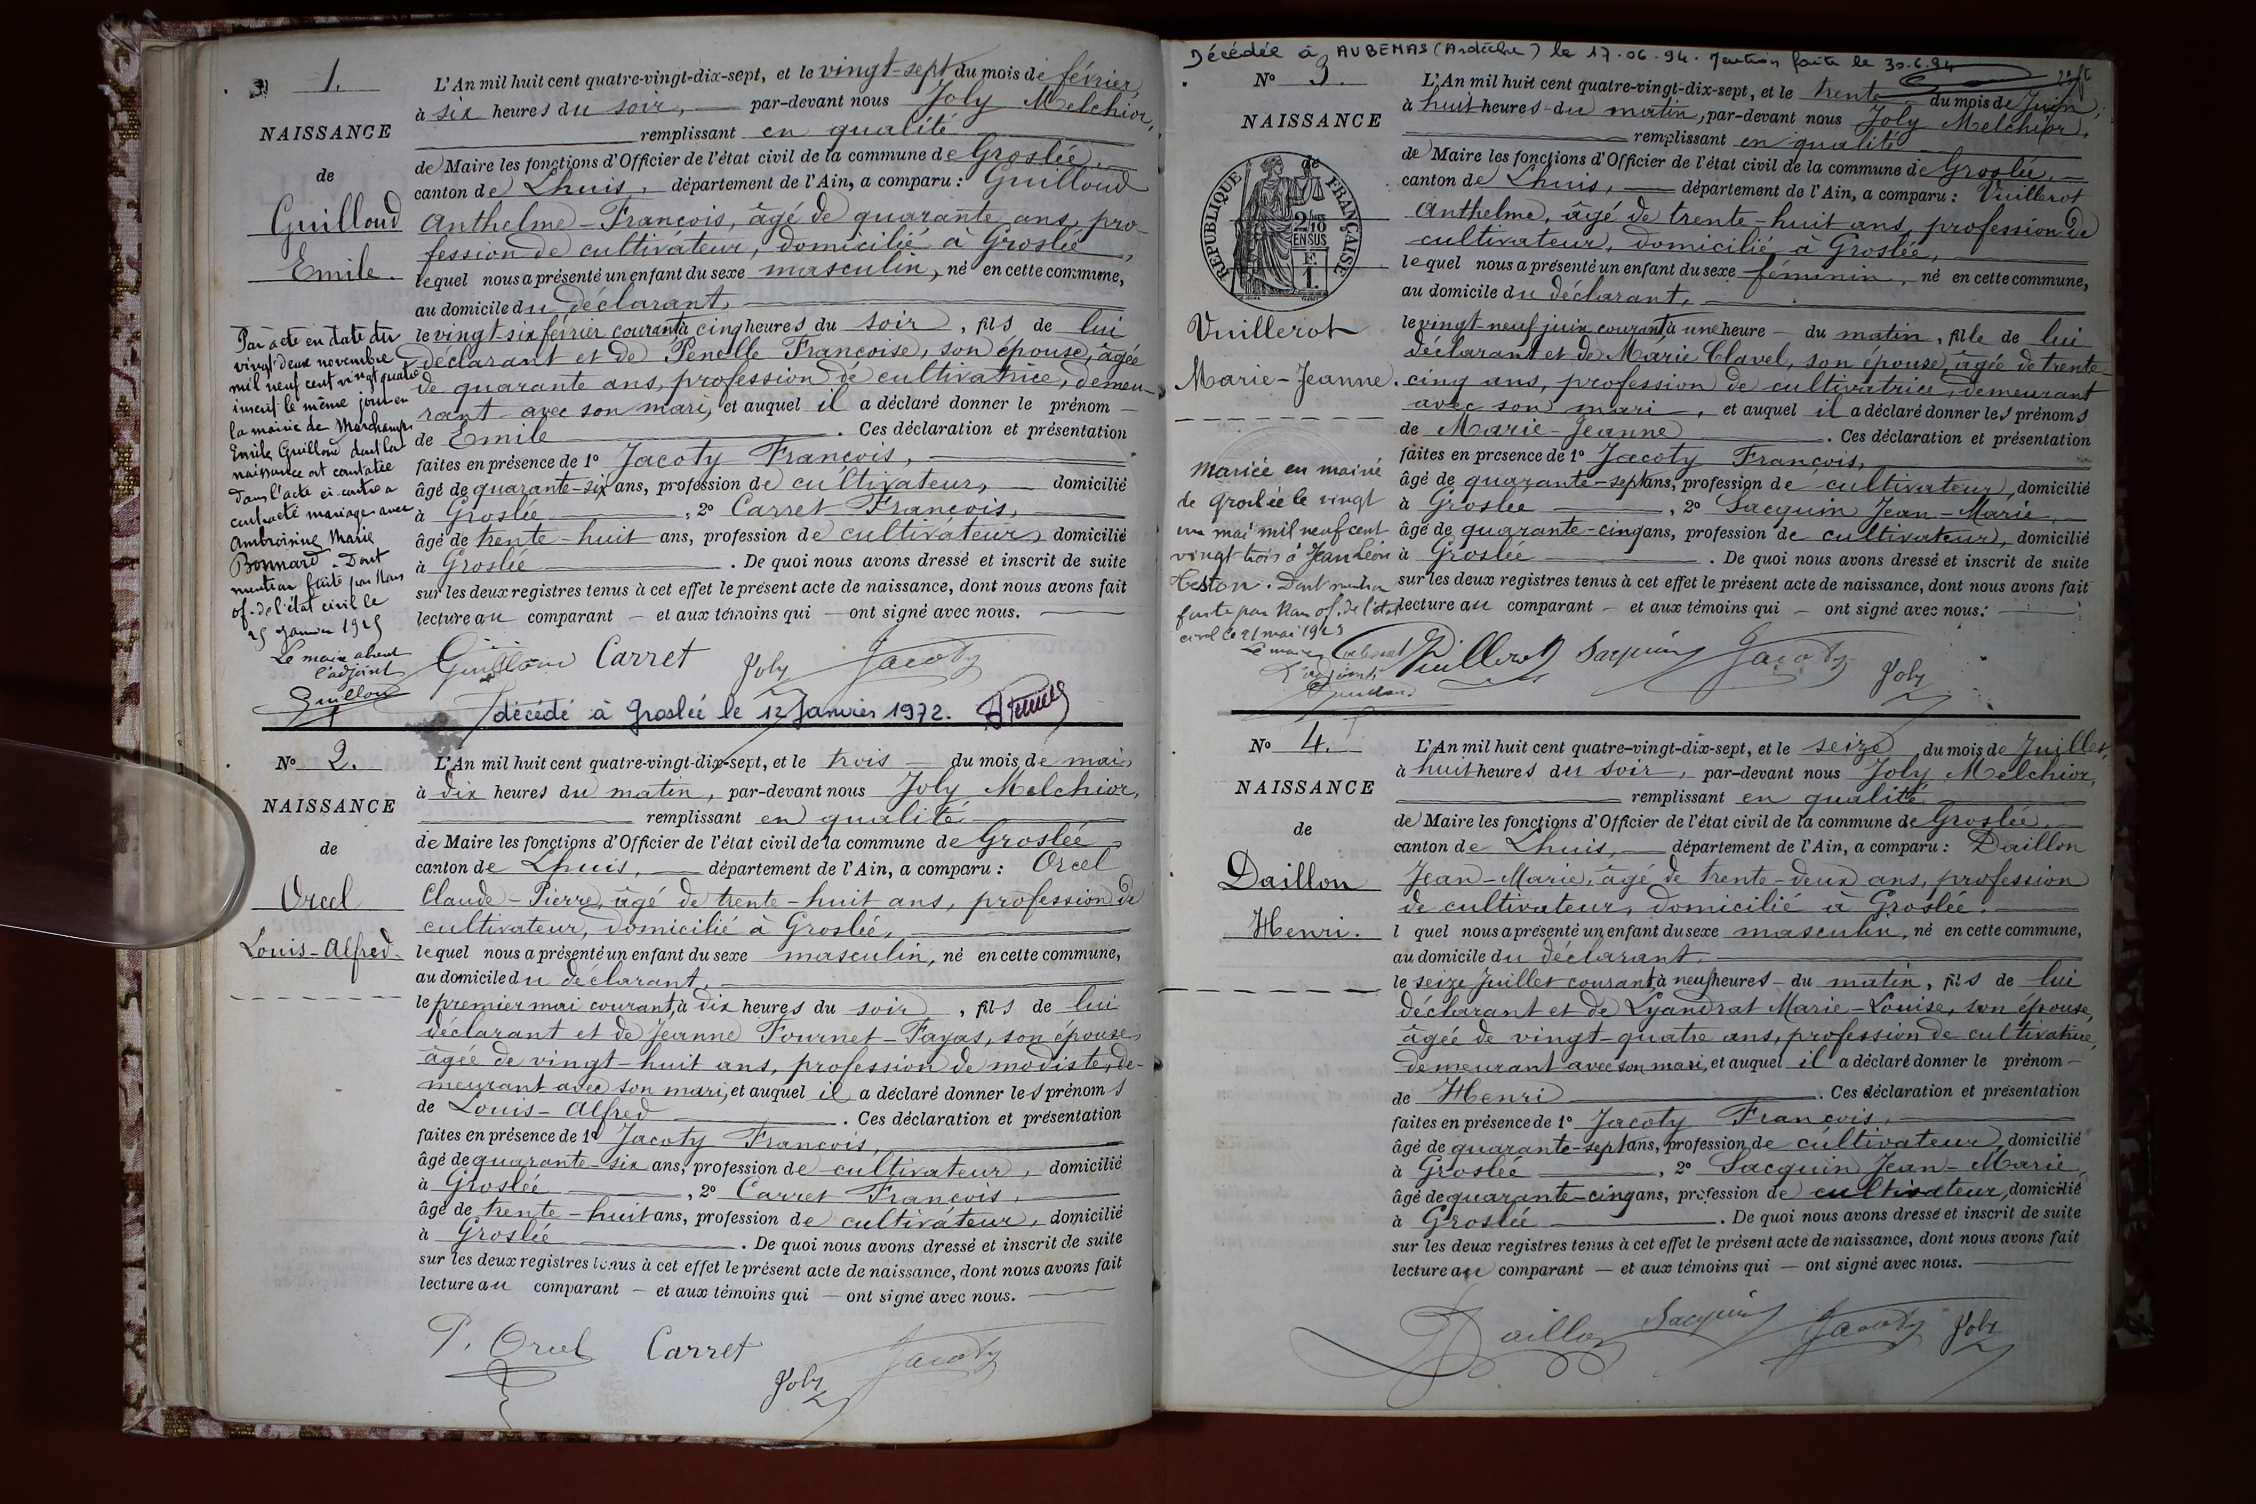 N° 1.
NAISSANCE
de
Guilloud
Emile.
L'An mil huit cent quatre-vingt-dix-sept, et le vingt-sept du mois de février,
à six heures du soir, par-devant nous Joly Melchior,
remplissant en qualité
de Maire les fonctions d'Officier de l'état civil de la commune de Groslée,
canton de Lhuis, département de l'Ain, a comparu : Guilloud
Anthelme-François, âgé de quarante ans, pro-
fession de cultivateur, domicilié à Groslée,
lequel nous a présenté un enfant du sexe masculin, né en cette commune,
au domicile du déclarant,
le vingt-six février courant, à cinq heures du soir, fils de lui
déclarant et de Penelle Françoise, son épouse, âgée
de quarante ans, profession de cultivatrice, demeu-
rant avec son mari, et auquel il a déclaré donner le prénom
de Emile . Ces déclaration et présentation
faites en présence de 1° Jacoty François,
âgé de quarante-six ans, profession de cultivateur, domicilié
à Groslée , 2° Carret François,
âgé de trente-huit ans, profession de cultivateur, domicilié
à Groslée . De quoi nous avons dressé et inscrit de suite
sur les deux registres tenus à cet effet le présent acte de naissance, dont nous avons fait
lecture au comparant — et aux témoins qui — ont signé avec nous.
Par acte en date du
vingt deux novembre
mil neuf cent vingt quatre
inscrit le même jour en
la mairie de Marchamp
Emile Guilloud dont la
naissance est constatée
dans l'acte ci-contre a
contracté mariage avec
Ambroisine Marie
Bonnard. Dont
mention faite par Nous
of. de l'état civil le
25 Janvier 1925
Le maire absent
l'adjoint
Guilloud
Guilloud Carret Joly Jacoty
décédé à Groslée le 12 Janvier 1972.
N° 2.
NAISSANCE
de
Orcel
Louis-Alfred.
L'An mil huit cent quatre-vingt-dix-sept, et le trois — du mois de mai,
à dix heures du matin, par-devant nous Joly Melchior,
remplissant en qualité
de Maire les fonctions d'Officier de l'état civil de la commune de Groslée
canton de Lhuis, département de l'Ain, a comparu : Orcel
Claude-Pierre, âgé de trente-huit ans, profession de
cultivateur, domicilié à Groslée,
lequel nous a présenté un enfant du sexe masculin, né en cette commune,
au domicile du déclarant,
le premier mai courant, à dix heures du soir, fils de lui
déclarant et de Jeanne Fournet-Fayas, son épouse,
âgée de vingt-huit ans, profession de modiste, de-
meurant avec son mari, et auquel il a déclaré donner les prénoms
de Louis-Alfred . Ces déclaration et présentation
faites en présence de 1° Jacoty François,
âgé de quarante-six ans, profession de cultivateur, domicilié
à Groslée , 2° Carret François,
âgé de trente-huit ans, profession de cultivateur, domicilié
à Groslée . De quoi nous avons dressé et inscrit de suite
sur les deux registres tenus à cet effet le présent acte de naissance, dont nous avons fait
lecture au comparant — et aux témoins qui — ont signé avec nous.
P. Orcel Carret Joly Jacoty
Décédée à AUBENAS (Ardèche) le 17.06.94. Mention faite le 30.6.94
N° 3.
NAISSANCE
de
RÉPUBLIQUE FRANÇAISE
2/10 EN SUS
F.
1
Vuillerot
Marie-Jeanne.
L'An mil huit cent quatre-vingt-dix-sept, et le trente du mois de Juin,
à huit heures du matin, par-devant nous Joly Melchior,
remplissant en qualité
de Maire les fonctions d'Officier de l'état civil de la commune de Groslée,
canton de Lhuis, département de l'Ain, a comparu : Vuillerot
Anthelme, âgé de trente-huit ans, profession de
cultivateur, domicilié à Groslée,
lequel nous a présenté un enfant du sexe féminin, né en cette commune,
au domicile du déclarant,
le vingt-neuf juin courant, à une heure — du matin, fille de lui
déclarant et de Marie Clavel, son épouse, âgée de trente-
cinq ans, profession de cultivatrice, demeurant
avec son mari, et auquel il a déclaré donner les prénoms
de Marie-Jeanne . Ces déclaration et présentation
faites en présence de 1° Jacoty François,
âgé de quarante-sept ans, profession de cultivateur, domicilié
à Groslée , 2° Sacquin Jean-Marie,
âgé de quarante-cinq ans, profession de cultivateur, domicilié
à Groslée . De quoi nous avons dressé et inscrit de suite
sur les deux registres tenus à cet effet le présent acte de naissance, dont nous avons fait
lecture au comparant — et aux témoins qui — ont signé avec nous.
Mariée en mairie
de Groslée le vingt
un mai mil neuf cent
vingt trois à Jean Léon
Ceston. Dont mention
faite par Nous of. de l'état
civil le 21 mai 1923
Le maire absent
L'adjoint
Guilloud
Vuillerot Sacquin Jacoty Joly
N° 4.
NAISSANCE
de
Daillon
Henri.
L'An mil huit cent quatre-vingt-dix-sept, et le seize du mois de Juillet,
à huit heures du soir, par-devant nous Joly Melchior,
remplissant en qualité
de Maire les fonctions d'Officier de l'état civil de la commune de Groslée,
canton de Lhuis, département de l'Ain, a comparu : Daillon
Jean-Marie, âgé de trente-deux ans, profession
de cultivateur, domicilié à Groslée,
l quel nous a présenté un enfant du sexe masculin, né en cette commune,
au domicile du déclarant,
le seize Juillet courant, à neuf heures — du matin, fils de lui
déclarant et de Lyandrat Marie-Louise, son épouse,
âgée de vingt-quatre ans, profession de cultivatrice,
demeurant avec son mari, et auquel il a déclaré donner le prénom
de Henri . Ces déclaration et présentation
faites en présence de 1° Jacoty François,
âgé de quarante-sept ans, profession de cultivateur, domicilié
à Groslée , 2° Sacquin Jean-Marie,
âgé de quarante-cinq ans, profession de cultivateur, domicilié
à Groslée . De quoi nous avons dressé et inscrit de suite
sur les deux registres tenus à cet effet le présent acte de naissance, dont nous avons fait
lecture au comparant — et aux témoins qui — ont signé avec nous.
Daillon Sacquin Jacoty Joly